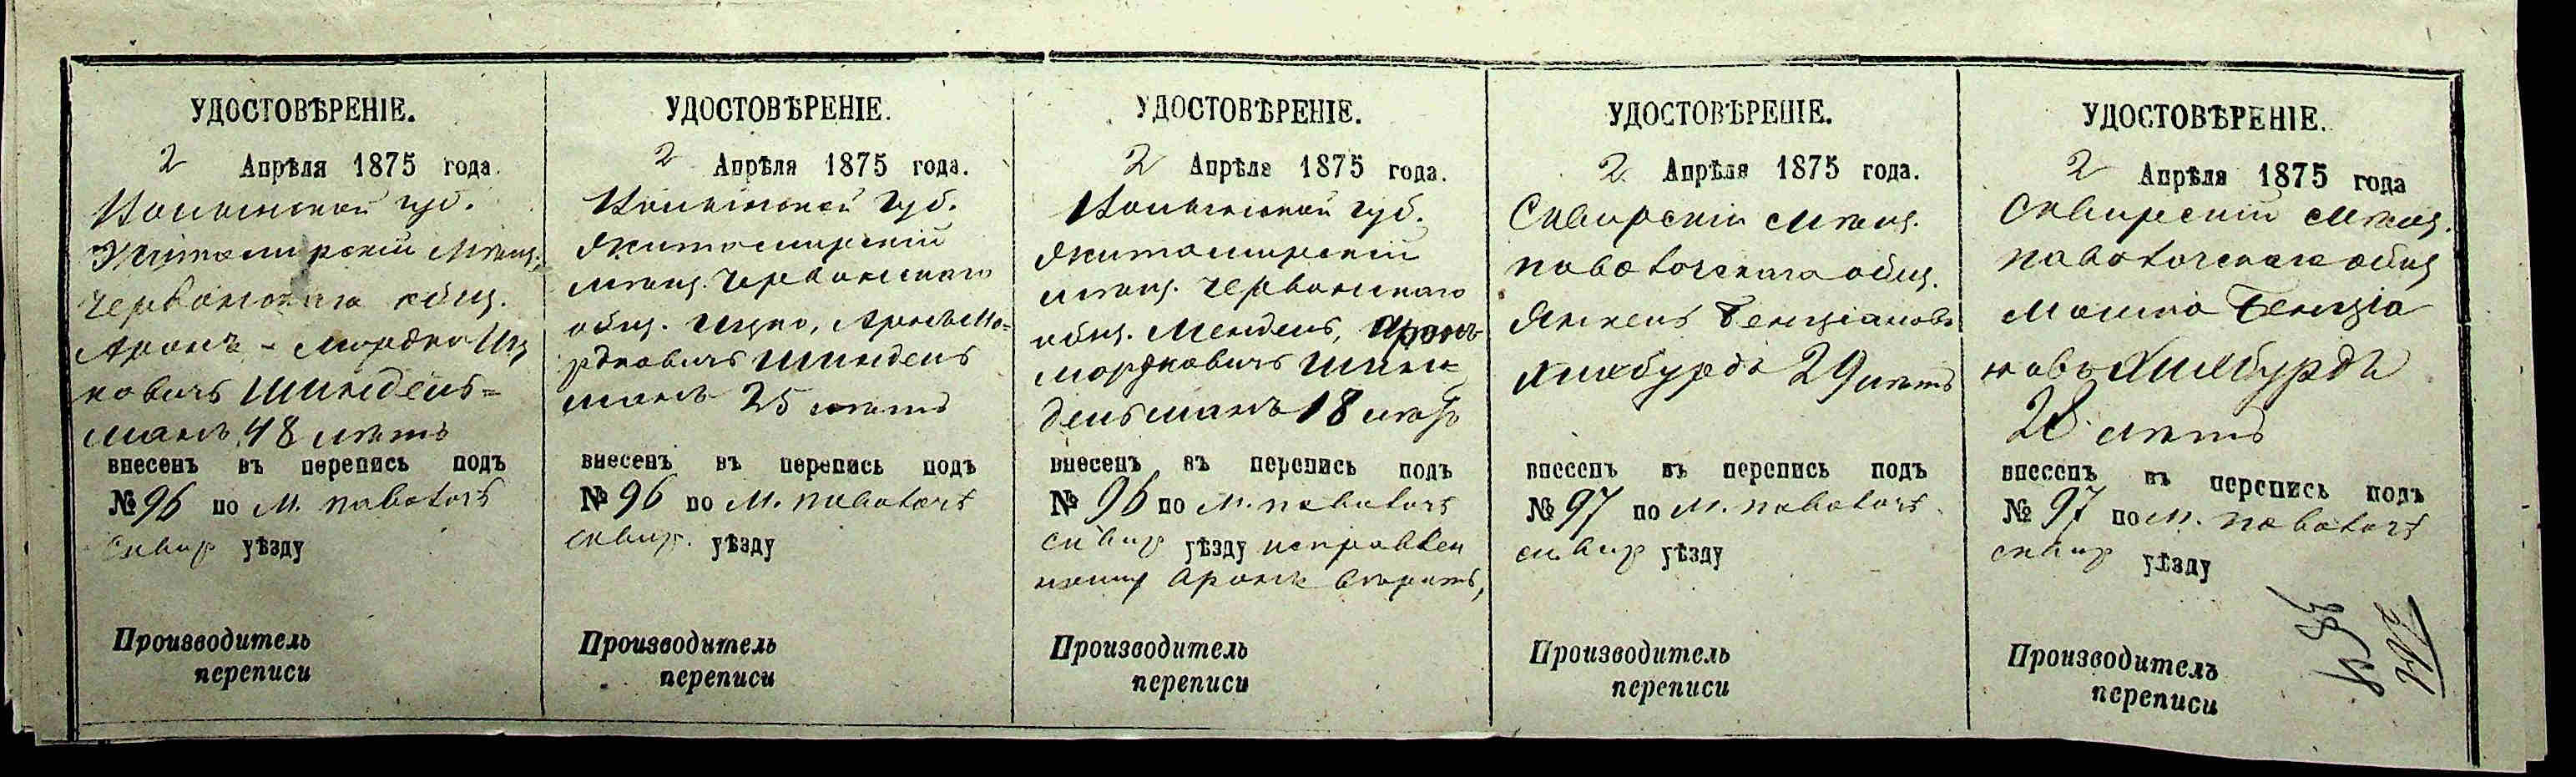 УДОСТОВѢРЕНІЕ.
2 Апрѣля 1875 года.
Волынской губ.
Житомирскій мѣщ.
Червонскаго общ.
Аронъ-Мордко Иц
ковичъ Шиндель=
манъ, 48 лѣтъ
внесенъ въ перепись подъ
№ 96 по м. Паволочѣ
Сквир уѣзду
Производитель
переписи
УДОСТОВѢРЕНІЕ.
2 Апрѣля 1875 года.
Волынской губ.
Житомирскій
мѣщ. Червонскаго
общ. Ицко, Аронъ Мо=
рдковичъ Шиндель
манъ 25 лѣтъ
внесенъ въ перепись подъ
№ 96 по м. Паволочѣ
Сквир. уѣзду
Производитель
переписи
УДОСТОВѢРЕНІЕ.
2 Апрѣля 1875 года.
Волынской губ.
Житомирскій
мѣщ. Червонскаго
общ. Мендель, Аронъ
Мордковичъ Шин
дельманъ 18 лѣтъ
внесенъ въ перепись подъ
№ 96 по м. Паволочѣ
Сквир уѣзду исправлен
Аронъ вѣрить,
Производитель
переписи
УДОСТОВѢРЕНІЕ.
2 Апрѣля 1875 года.
Сквирскій мѣщ.
Паволочскаго общ.
Янкель Бенціановъ
Лимбурдъ 29 лѣтъ
внесенъ въ перепись подъ
№ 97 по м. Паволочѣ
Сквир уѣзду
Производитель
переписи
УДОСТОВѢРЕНІЕ.
2 Апрѣля 1875 года
Сквирскій мѣщ.
Паволочскаго общ
Мошко Бенціа
новъ Лимбурдъ
28 лѣтъ
внесенъ въ перепись подъ
№ 97 по м. Паволочѣ
Сквир уѣзду
Производитель
переписи